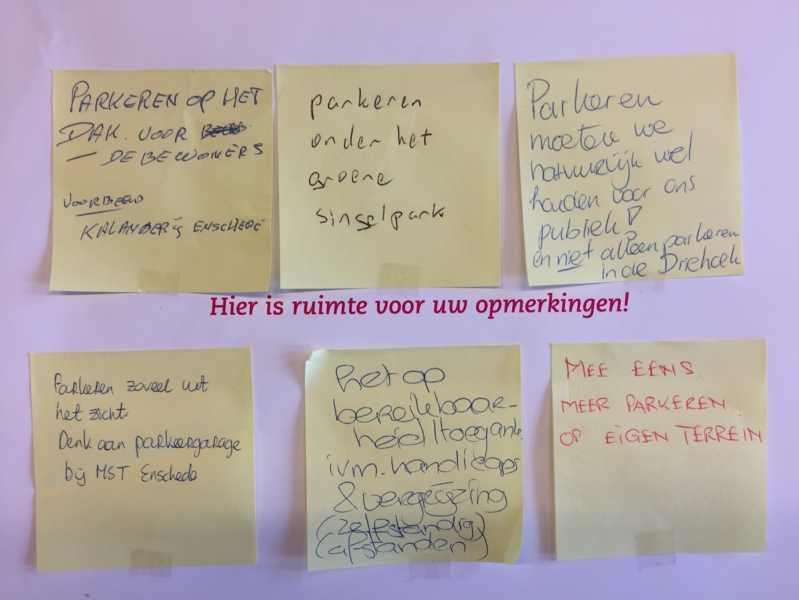 PARKEREN OP HET
DAK. VOOR
— DE BEWONERS
VOORBEELD
KALANDERIJ ENSCHEDE
parkeren
onder het
groene
singelpark
Parkeren
moeten we
natuurlijk wel
houden voor ons
publiek!
en niet alleen parkeren
in de Driehoek
Hier is ruimte voor uw opmerkingen!
Parkeren zoveel uit
het zicht.
Denk aan parkeergarage
bij MST Enschede
Let op
bereikbaar-
heid/toegank.
ivm. handicaps
& vergrijzing
(zelfstandig)
(afstanden)
MEE EENS.
MEER PARKEREN
OP EIGEN TERREIN